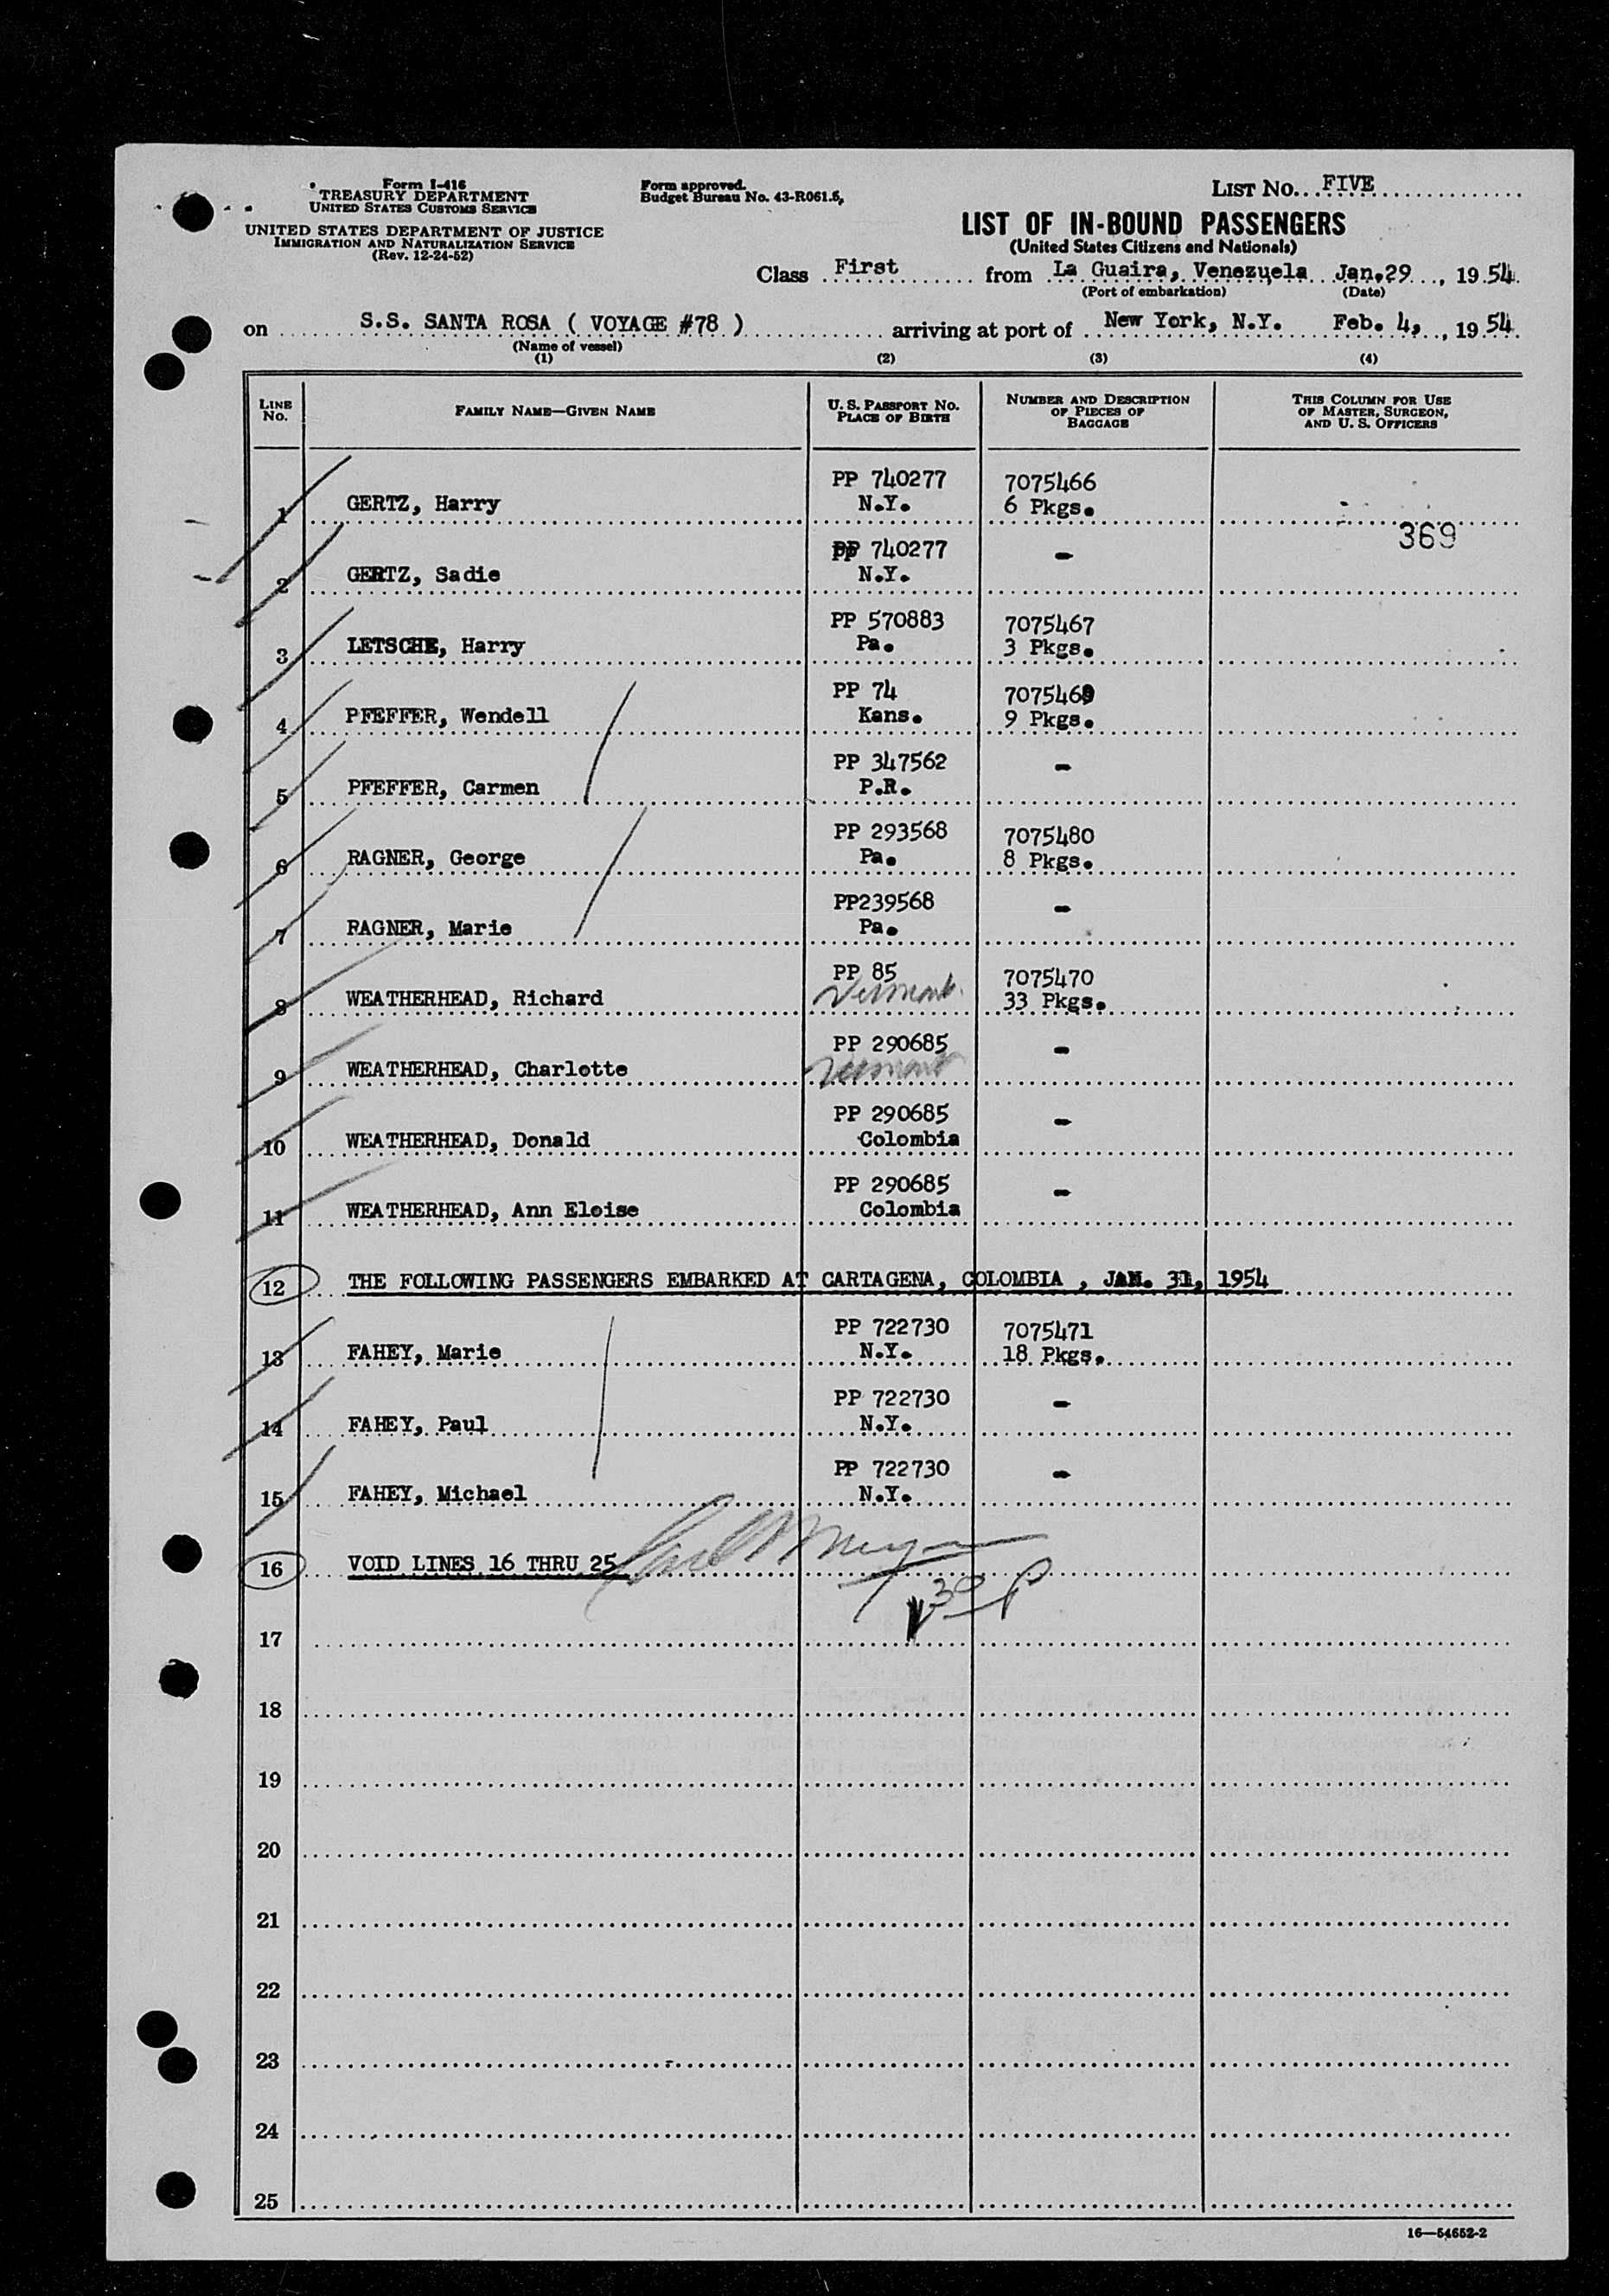 Form I-416
TREASURY DEPARTMENT
UNITED STATES CUSTOMS SERVICE
UNITED STATES DEPARTMENT OF JUSTICE
IMMIGRATION AND NATURALIZATION SERVICE
(Rev. 12-24-52)
Form approved.
Budget Bureau No. 43-R061.5.
LIST NO. FIVE
LIST OF IN-BOUND PASSENGERS
(United States Citizens and Nationals)
Class First from La Guaira, Venezuela Jan. 29, 1954
(Port of embarkation) (Date)
on S.S. SANTA ROSA ( VOYAGE #78 ) arriving at port of New York, N.Y. Feb. 4, 1954
(Name of vessel)
(1) (2) (3) (4)
LINE NO. FAMILY NAME—GIVEN NAME U. S. PASSPORT NO. PLACE OF BIRTH NUMBER AND DESCRIPTION OF PIECES OF BAGGAGE THIS COLUMN FOR USE OF MASTER, SURGEON, AND U. S. OFFICERS
PP 740277 7075466
1 GERTZ, Harry N.Y. 6 Pkgs.
369
PP 740277 -
2 GERTZ, Sadie N.Y.
PP 570883 7075467
3 LETSCHE, Harry Pa. 3 Pkgs.
PP 74 7075469
4 PFEFFER, Wendell Kans. 9 Pkgs.
PP 347562 -
5 PFEFFER, Carmen P.R.
PP 293568 7075480
6 RAGNER, George Pa. 8 Pkgs.
PP239568 -
7 RAGNER, Marie Pa.
PP 85 7075470
8 WEATHERHEAD, Richard Vermont. 33 Pkgs.
PP 290685 -
9 WEATHERHEAD, Charlotte Vermont
PP 290685 -
10 WEATHERHEAD, Donald Colombia
PP 290685 -
11 WEATHERHEAD, Ann Eloise Colombia
12 THE FOLLOWING PASSENGERS EMBARKED AT CARTAGENA, COLOMBIA , JAN. 31, 1954
PP 722730 7075471
13 FAHEY, Marie N.Y. 18 Pkgs.
PP 722730 -
14 FAHEY, Paul N.Y.
PP 722730 -
15 FAHEY, Michael N.Y.
16 VOID LINES 16 THRU 25
17
18
19
20
21
22
23
24
25
16—54652-2